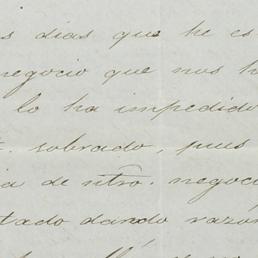 s dias que he es
negocio que nos h
lo ha impedido
sobrado, pues
ia de ntro. negoci
tado dando razón